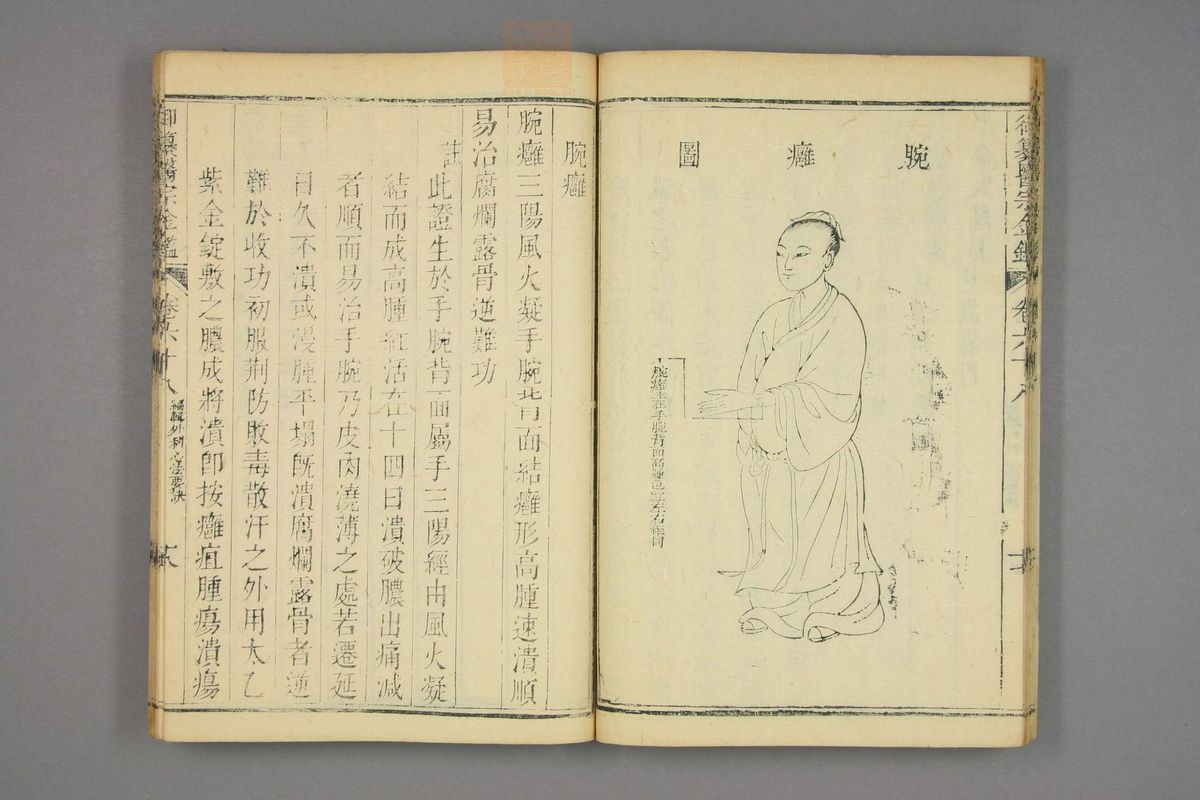 御纂醫宗金鑑
卷六十八
腕癰圖
腕癰生在手腕背面高腫色紅左右相同
腕癰
腕癰三陽風火凝手腕背面結癰形高腫速潰順
易治腐爛露骨逆難功
註此證生於手腕背面屬手三陽經由風火凝
結而成高腫紅活在十四日潰破膿出痛減
者順而易治手腕乃皮肉澆薄之處若遷延
日久不潰或漫腫平塌既潰腐爛露骨者逆
難於收功初服荆防敗毒散汗之外用太乙
紫金錠敷之膿成將潰即按癰疽腫瘍潰瘍
御纂醫宗金鑑
卷六十八
編輯外科心法要訣